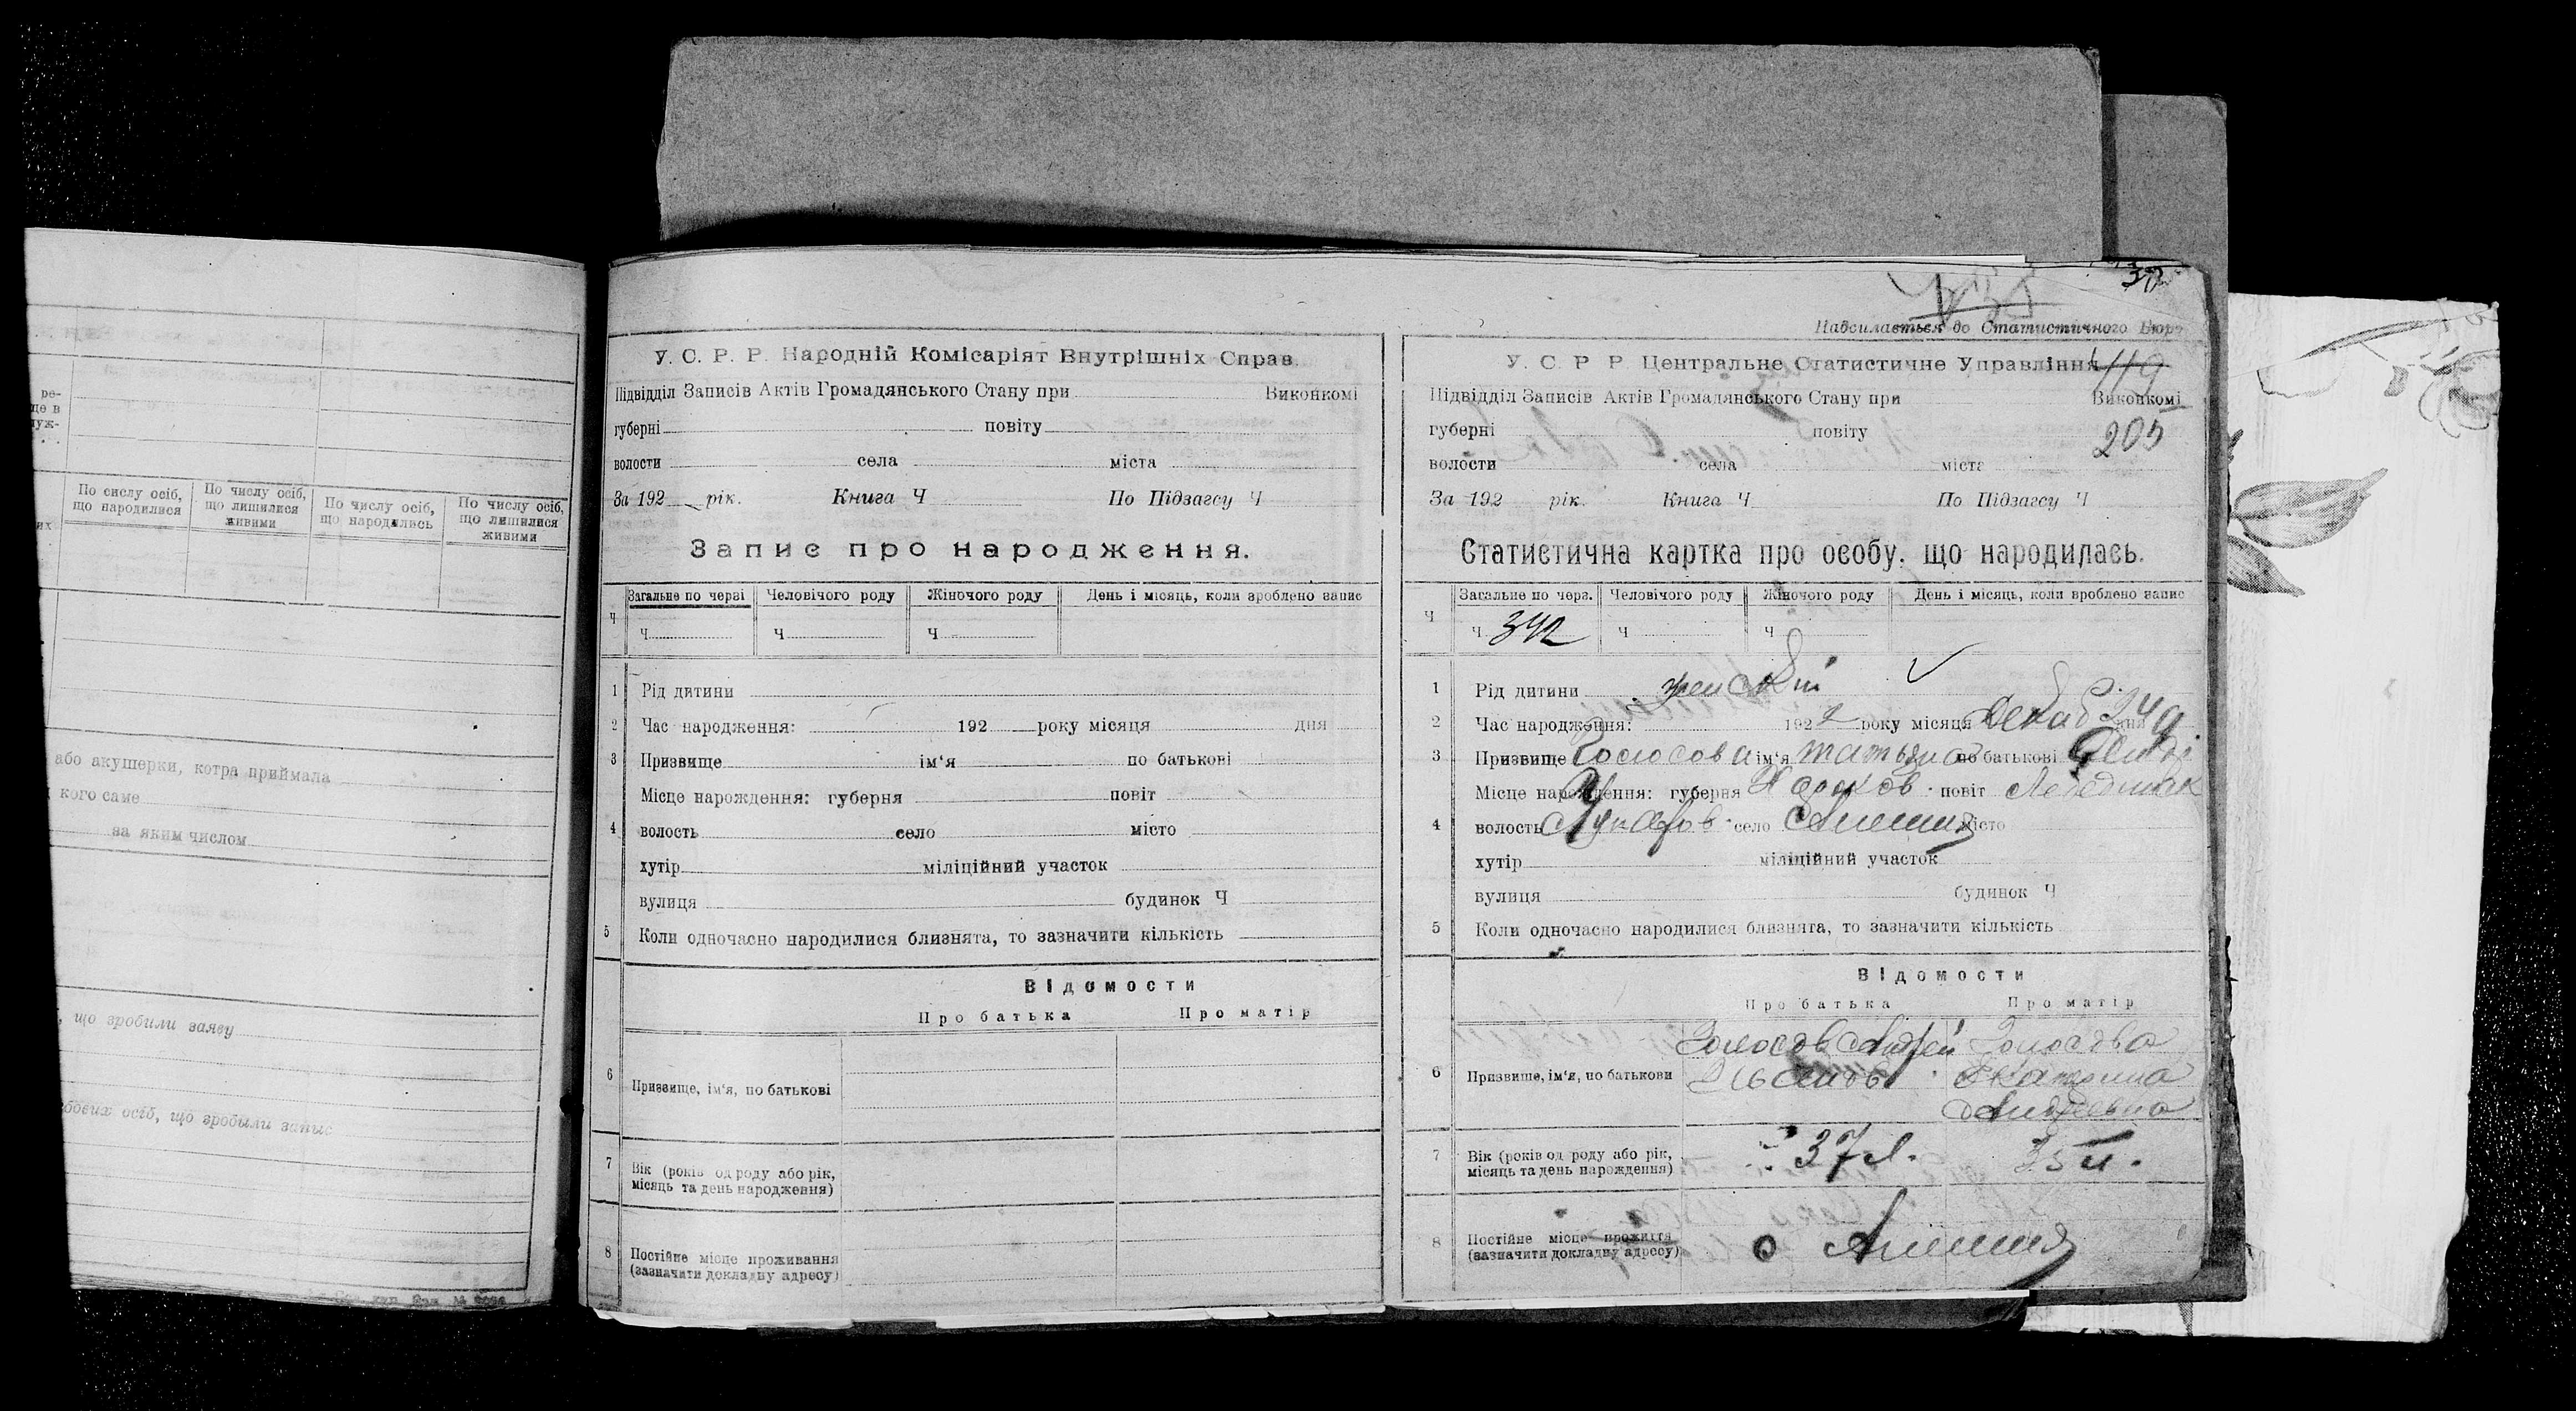 ре-
ще в
луж-
По числу осіб, що народилися
По числу осіб, що лишилися живими
По числу осіб, що народились
По числу осіб, що лишилися живими
их
або акушерки, котра приймала
кого саме
за яким числом
, що зробили заяву
осіб, що зробили запис
У. С. Р. Р. Народній Комісаріят Внутрішніх Справ.
Підвідділ Записів Актів Громадянського Стану при Виконкомі
губерні повіту
волости села міста
За 192 рік. Книга Ч По Підзагсу Ч
Запис про народження.
Ч Загальне по черзі Человічого роду Жіночого роду День і місяць, коли зроблено запис
Ч Ч Ч
1 Рід дитини
2 Час народження: 192 року місяця дня
3 Призвище ім'я по батькові
Місце нарождення: губерня повіт
4 волость село місто
хутір міліційний участок
вулиця будинок Ч
5 Коли одночасно народилися близнята, то зазначити кількість
Відомости
Про батька Про матір
6 Призвище, ім'я, по батькові
7 Вік (років од роду або рік,
місяць та день народження)
8 Постійне місце проживання
(зазначити докладну адресу)
Надсилається до Статистичного Бюро
У. С. Р. Р. Центральне Статистичне Управління
119
Підвідділ Записів Актів Громадянського Стану при Виконкомі
губерні повіту 205
волости села міста
За 192 рік. Книга Ч По Підзагсу Ч
Статистична картка про особу, що народилась.
Ч Загальне по черз. Человічого роду Жіночого роду День і місяць, коли зроблено запис
Ч 342 Ч Ч
1 Рід дитини женский
2 Час народження: 1922 року місяця Декаб 24 дня
3 Призвище ім'я Татьяна по батькові
Місце нарождення: губерня Харьков. повіт Лебедин
4 волость село Алешня місто
хутір міліційний участок
вулиця будинок Ч
5 Коли одночасно народилися близнята, то зазначити кількість
Відомости
Про батька Про матір
6 Призвище, ім'я, по батькови
Андрей
Екатерина
Андреевна
7 Вік (років од роду або рік,
місяць та день нарождення) 37 л. 35 л.
8 Постійне місце прожиття
(зазначити докладну адресу) Алешня